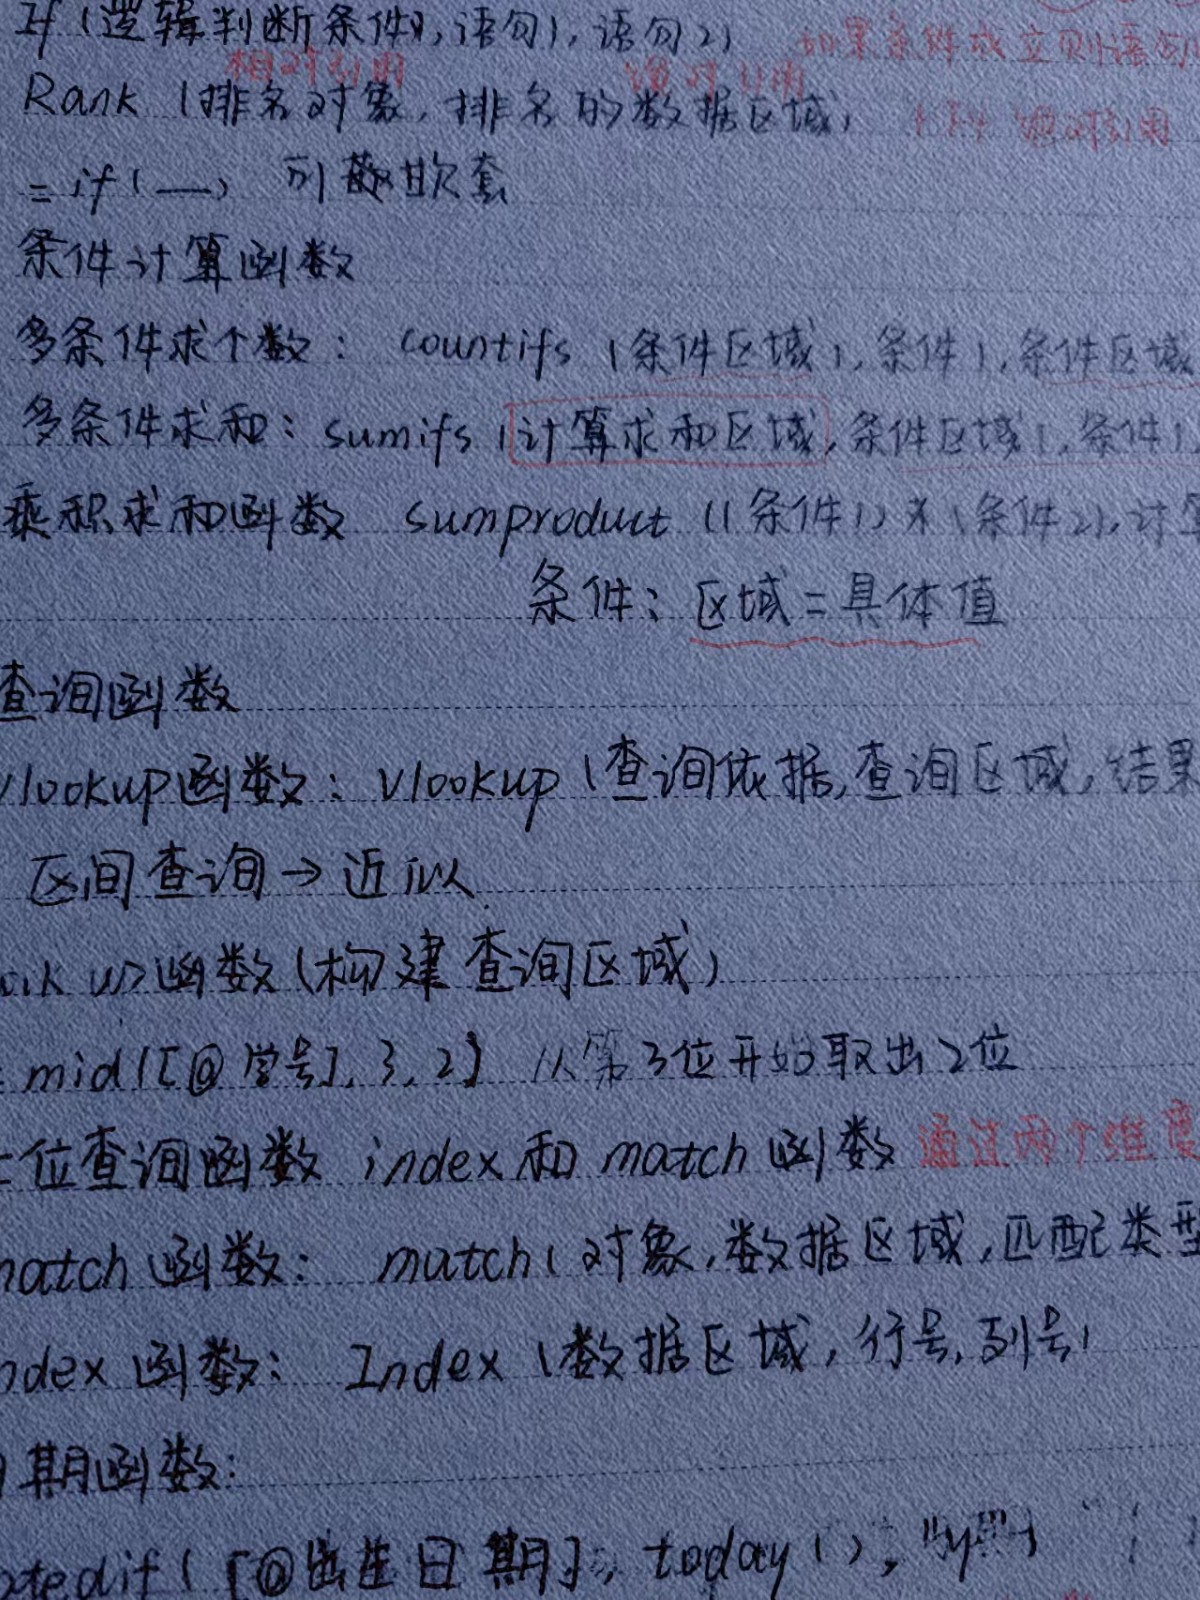 If（逻辑判断条件，语句1，语句2）
如果条件成立则语句
相对引用 绝对引用
Rank（排名对象，排名的数据区域，
绝对引用
=if（—） 可 嵌套
条件计算函数
多条件求个数： countifs（条件区域1，条件1，条件区域
多条件求和：sumifs（计算求和区域，条件区域1，条件1，
乘积求和函数 sumproduct（（条件1）*（条件2），计算
条件：区域=具体值
查询函数
vlookup函数：vlookup（查询依据，查询区域，结果
区间查询→近似
函数（构建查询区域）
=mid([@学号],3,2] 从第3位开始取出2位
位查询函数 index和match函数 通过两个维度
match函数： match（对象，数据区域，匹配类型
ndex函数： Index（数据区域，行号，列号）
期函数：
atedif（[@出生日期]，today（），"y"）